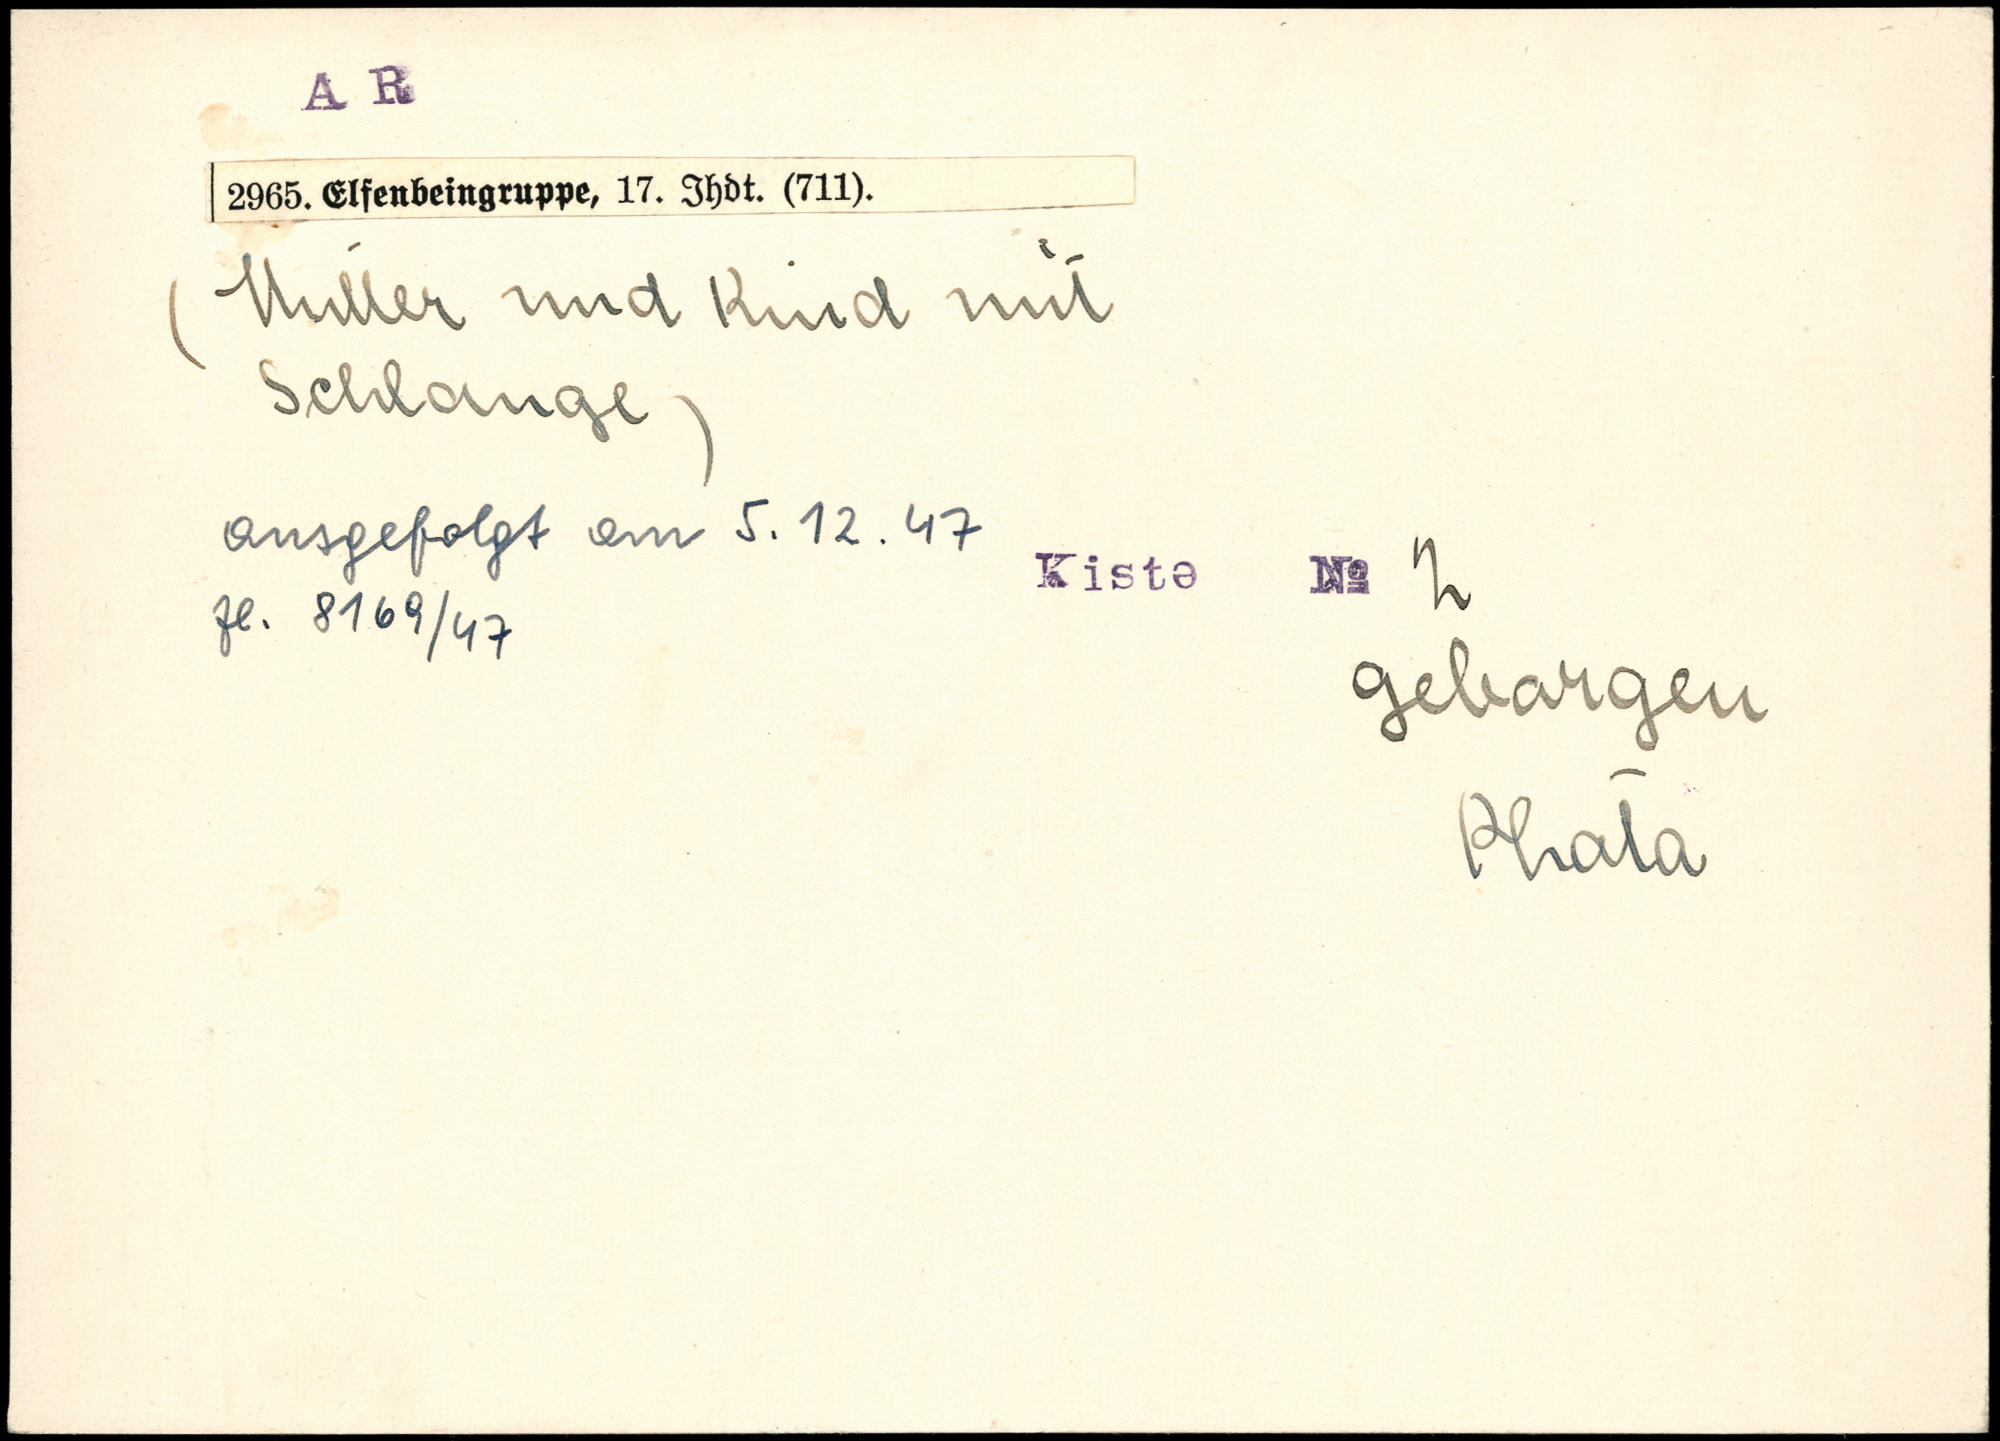 A R
2965. Elfenbeingruppe, 17. Jhdt. (711).
(Mutter und Kind mit
Schlange)
ausgefolgt am 5. 12. 47
zl. 8169/47
Kiste № 2
geborgen
Photo